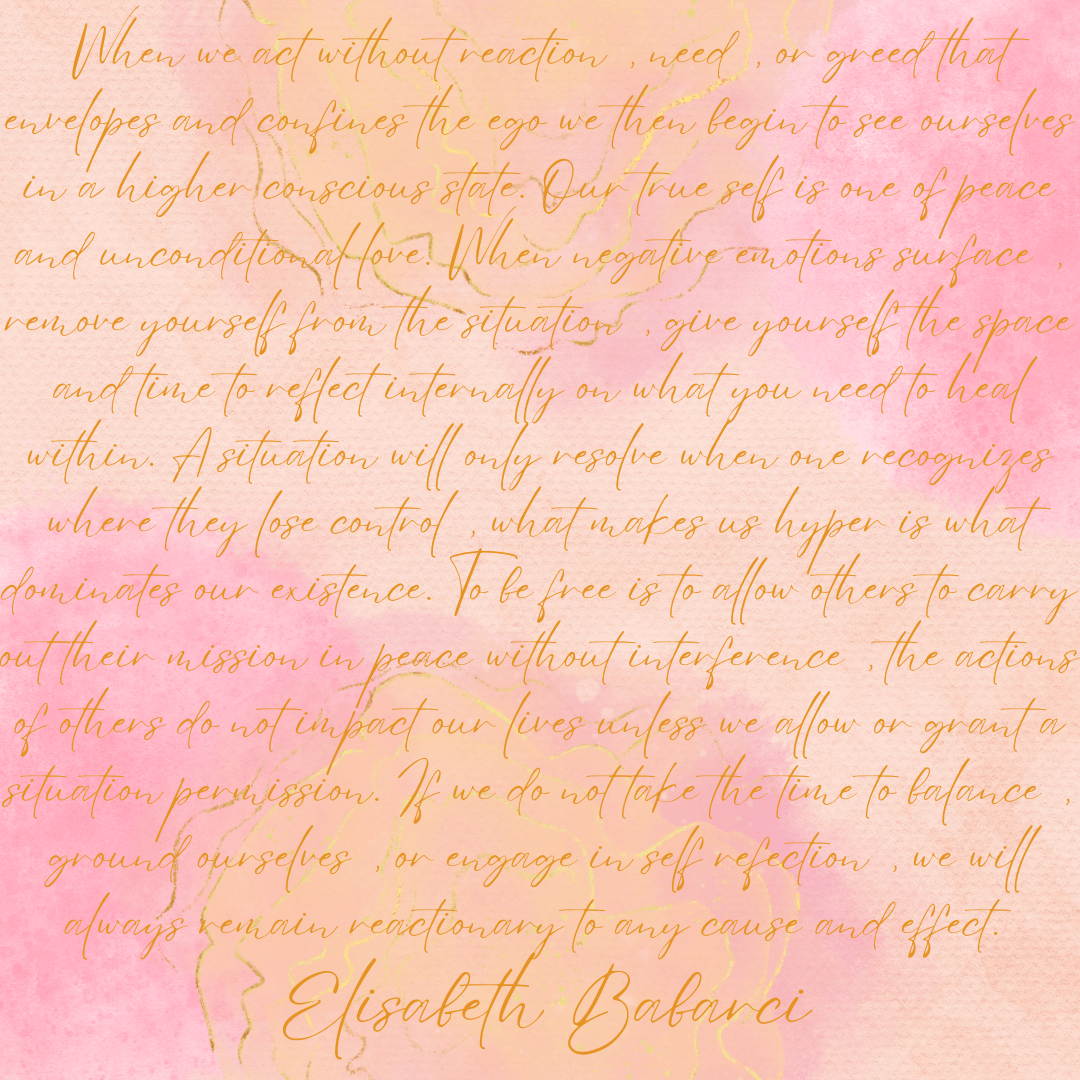 When we act without reaction , need , or greed that
envelopes and confines the ego we then begin to see ourselves
in a higher conscious state. Our true self is one of peace
and unconditional love. When negative emotions surface ,
remove yourself from the situation , give yourself the space
and time to reflect internally on what you need to heal
within. A situation will only resolve when one recognizes
where they lose control , what makes us hyper is what
dominates our existence. To be free is to allow others to carry
out their mission in peace without interference , the actions
of others do not impact our lives unless we allow or grant a
situation permission. If we do not take the time to balance ,
ground ourselves , or engage in self refection , we will
always remain reactionary to any cause and effect.
Elisabeth Babarci